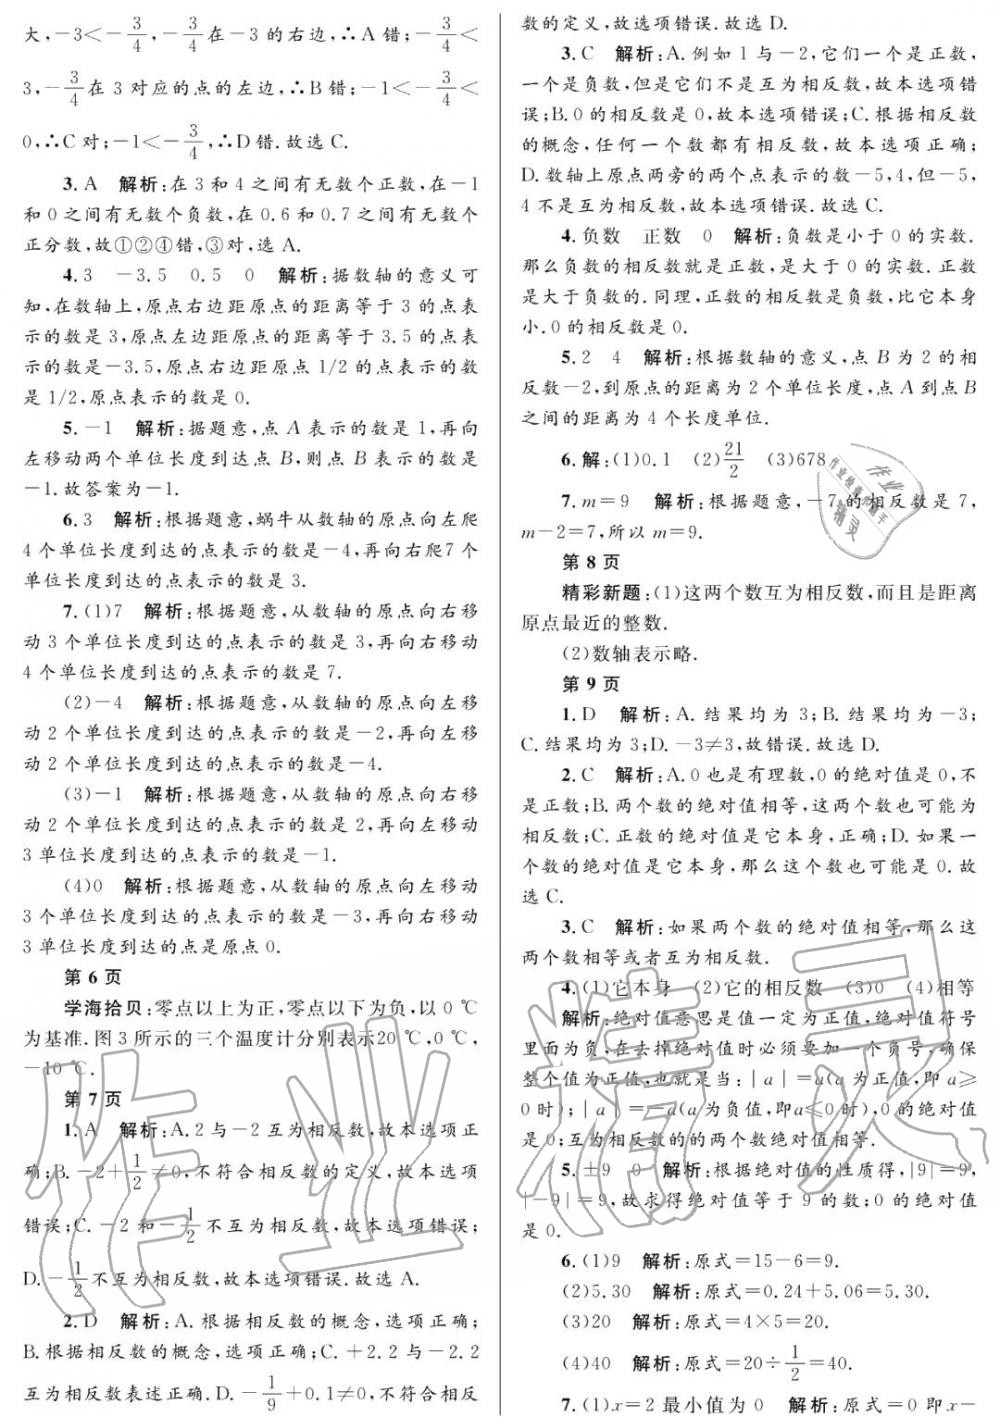 大,－3＜－3/4,－3/4在－3的右边,∴A错;－3/4＜
3,－3/4在3对应的点的左边,∴B错;－1＜－3/4＜
0,∴C对;－1＜－3/4,∴D错.故选C.
3.A 解析:在3和4之间有无数个正数,在－1
和0之间有无数个负数,在0.6和0.7之间有无数个
正分数,故①②④错,③对,选A.
4.3 －3.5 0.5 0 解析:据数轴的意义可
知,在数轴上,原点右边距原点的距离等于3的点表
示的数是3,原点左边距原点的距离等于3.5的点表
示的数是－3.5,原点右边距原点1/2的点表示的数
是1/2,原点表示的数是0.
5.－1 解析:据题意,点A表示的数是1,再向
左移动两个单位长度到达点B,则点B表示的数是
－1.故答案为－1.
6.3 解析:根据题意,蜗牛从数轴的原点向左爬
4个单位长度到达的点表示的数是－4,再向右爬7个
单位长度到达的点表示的数是3.
7.(1)7 解析:根据题意,从数轴的原点向右移
动3个单位长度到达的点表示的数是3,再向右移动
4个单位长度到达的点表示的数是7.
(2)－4 解析:根据题意,从数轴的原点向左移
动2个单位长度到达的点表示的数是－2,再向左移
动2个单位长度到达的点表示的数是－4.
(3)－1 解析:根据题意,从数轴的原点向右移
动2个单位长度到达的点表示的数是2,再向左移动
3单位长度到达的点表示的数是－1.
(4)0 解析:根据题意,从数轴的原点向左移动
3个单位长度到达的点表示的数是－3,再向右移动
3单位长度到达的点是原点0.
第6页
学海拾贝:零点以上为正,零点以下为负,以0 ℃
为基准.图3所示的三个温度计分别表示20 ℃,0 ℃,
－10 ℃.
第7页
1.A 解析:A.2与－2互为相反数,故本选项正
确;B.－2＋1/2≠0,不符合相反数的定义,故本选项
错误;C.－2和－1/2不互为相反数,故本选项错误;
D.－1/2不互为相反数,故本选项错误.故选A.
2.D 解析:A.根据相反数的概念,选项正确;
B.根据相反数的概念,选项正确;C.＋2.2与－2.2
互为相反数表述正确.D.－1/9＋0.1≠0,不符合相反
数的定义,故选项错误.故选D.
3.C 解析:A.例如1与－2,它们一个是正数,
一个是负数,但是它们不是互为相反数,故本选项错
误;B.0的相反数是0,故本选项错误;C.根据相反数
的概念,任何一个数都有相反数,故本选项正确;
D.数轴上原点两旁的两个点表示的数－5,4,但－5,
4不是互为相反数,故本选项错误.故选C.
4.负数 正数 0 解析:负数是小于0的实数.
那么负数的相反数就是正数,是大于0的实数.正数
是大于负数的.同理,正数的相反数是负数,比它本身
小.0的相反数是0.
5.2 4 解析:根据数轴的意义,点B为2的相
反数－2,到原点的距离为2个单位长度,点A到点B
之间的距离为4个长度单位.
6.解:(1)0.1 (2)21/2 (3)678
7.m＝9 解析:根据题意,－7的相反数是7,
m－2＝7,所以m＝9.
第8页
精彩新题:(1)这两个数互为相反数,而且是距离
原点最近的整数.
(2)数轴表示略.
第9页
1.D 解析:A.结果均为3;B.结果均为－3;
C.结果均为3;D.－3≠3,故错误.故选D.
2.C 解析:A.0也是有理数,0的绝对值是0,不
是正数;B.两个数的绝对值相等,这两个数也可能为
相反数;C.正数的绝对值是它本身,正确;D.如果一
个数的绝对值是它本身,那么这个数也可能是0.故
选C.
3.C 解析:如果两个数的绝对值相等,那么这
两个数相等或者互为相反数.
4.(1)它本身 (2)它的相反数 (3)0 (4)相等
解析:绝对值意思是值一定为正值,绝对值符号
里面为负,在去掉绝对值时必须要加一个负号,确保
整个值为正值,也就是当:|a|＝a(a为正值,即a≥
0时);|a|＝－a(a为负值,即a≤0时),0的绝对值
是0;互为相反数的的两个数绝对值相等.
5.±9 0 解析:根据绝对值的性质得,|9|＝9,
|－9|＝9,故求得绝对值等于9的数;0的绝对值
是0.
6.(1)9 解析:原式＝15－6＝9.
(2)5.30 解析:原式＝0.24＋5.06＝5.30.
(3)20 解析:原式＝4×5＝20.
(4)40 解析:原式＝20÷1/2＝40.
7.(1)x＝2 最小值为0 解析:原式＝0即x－
作业精灵
作业检查小助手
作业
精灵